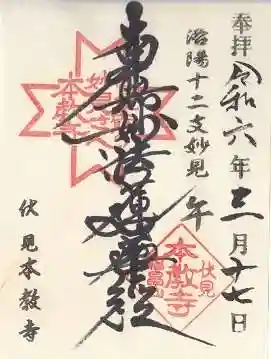 奉拝
令和六年三月十七日
洛陽十二支妙見
午
南無妙法蓮華経
本教寺
伏見
本教寺
伏見本教寺